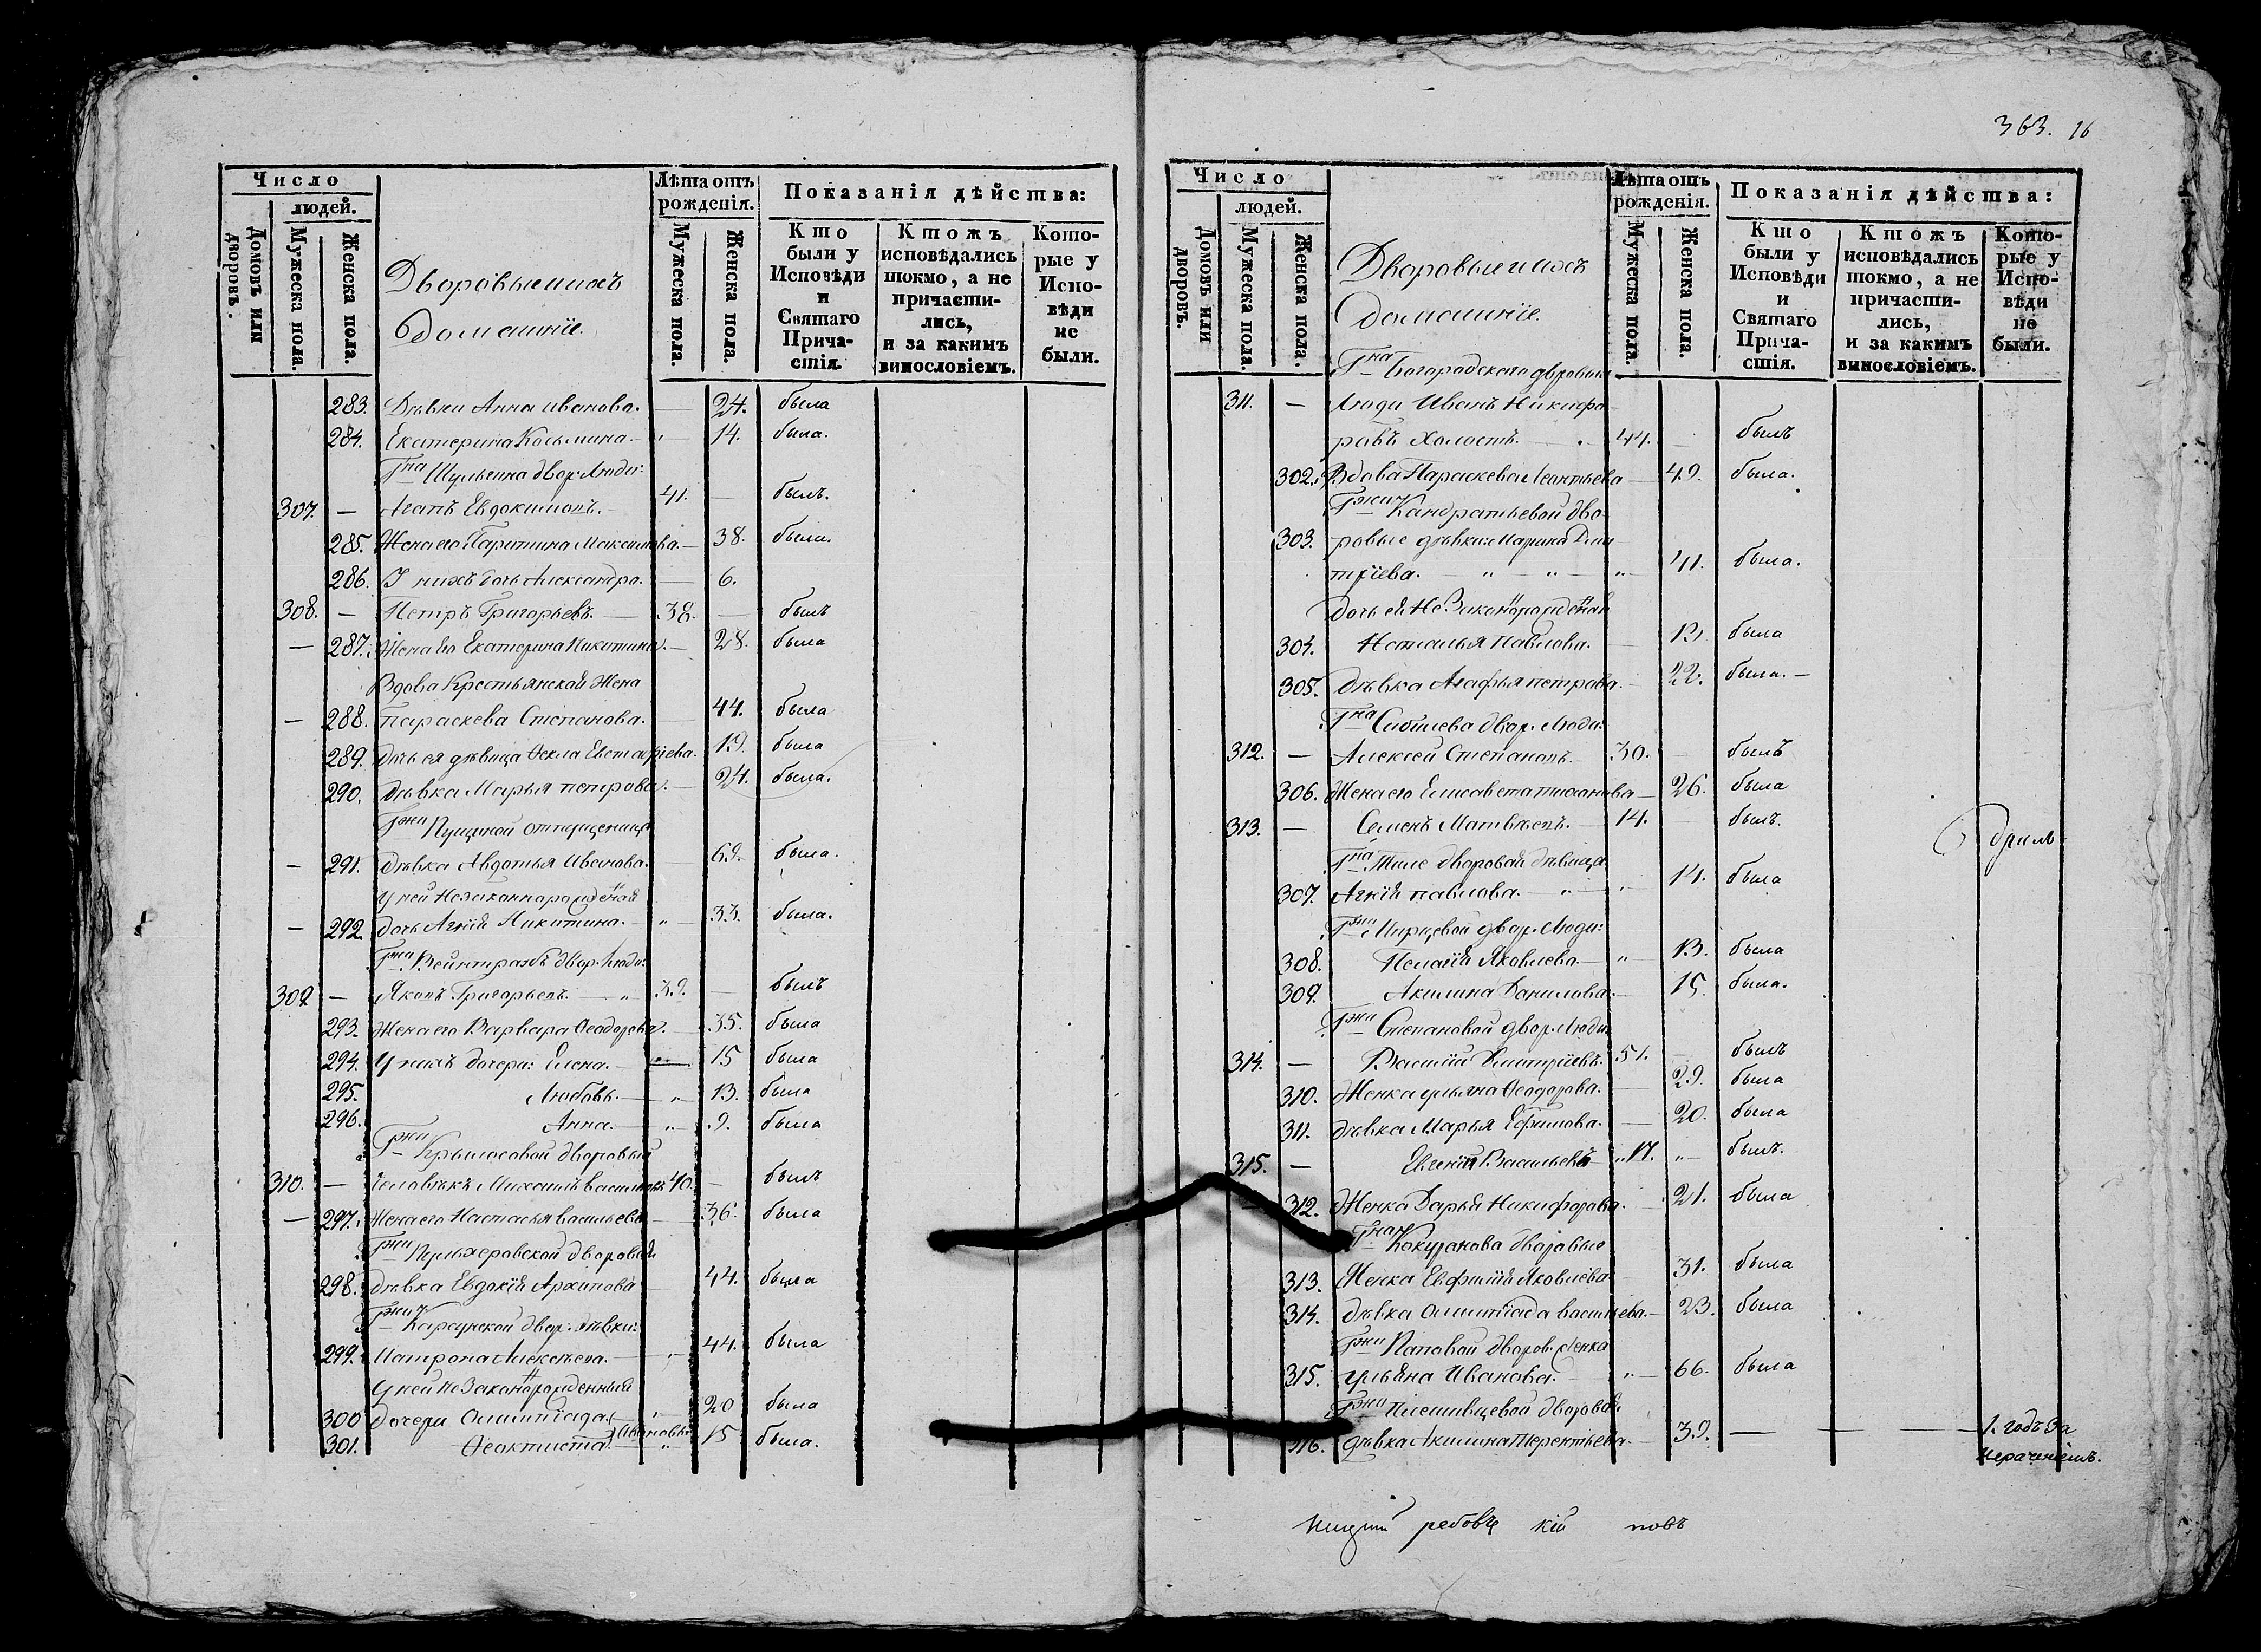 Число
людей.
Домовъ или дворовъ.
Мужеска пола.
Женска пола.
Дворовые и ихъ
Домашніе.
Лѣта отъ рожденія.
Мужеска пола.
Женска пола.
Показанія дѣйства:
Кто были у Исповѣди и Святаго Причастія.
Ктожъ исповѣдались токмо, а не причастились, и за какимъ винословіемъ.
Которые у Исповѣди не были.
283. Дѣвки Анна Иванова. — 24. была
284. Екатерина Косьмина. — 14. была.
Гна Шульгина двор: Люди:
307. — Агапъ Евдокимовъ. 41. — былъ.
285. Жена его Маримина Максимова. — 38. была.
286. У нихъ дочь Александра. — 6.
308. — Петръ Григорьевъ. — 38. — былъ
— 287. Жена его Екатерина Никитина. — 28. была
Вдова Крестьянская Жена
— 288. Параскева Степанова. — 44. была
289. Дочь ея дѣвица Ѳекла Евстафіева. 19. была
290. Дѣвка Марья петрова. — 24. была.
Гжи Пущиной отпущенница
— 291. Дѣвка Авдотья Иванова. — 69. была.
У ней Незаконнорожденная
— 292. дочь Агнія Никитина. — 33. была.
Гжи Вейнтраубъ двор. Люди:
309. — Яковъ Григорьевъ. — 39. — былъ
293. Жена его Варвара Ѳеодорова. — 35. была
294. У нихъ дочери: Елена. — 15 была
295. Любовь. — 13. была
296. Анна. — 9. была
Гжи Крыловой дворовый
310. — человѣкъ Михаилъ васильевъ 40. — былъ
— 297. Жена его Настасья васильева — 36. была
Гжи дворовая
298. дѣвка Евдокія Архипова — 44. была
Гжи Карсунской двор. дѣвки:
299. Матрона Алексѣева. — 44. была
У ней Незаконнорожденныя
300 дочери Олимпіада — 20 была
Ивановы
301. Ѳеоктиста. — 15 была.
363. 16
Число
людей.
Домовъ или дворовъ.
Мужеска пола.
Женска пола.
Дворовые и ихъ
домашніе.
Лѣта отъ рожденія.
Мужеска пола.
Женска пола.
Показанія дѣйства:
Кто были у Исповѣди и Святаго Причастія.
Ктожъ исповѣдались токмо, а не причастились, и за какимъ винословіемъ.
Которые у Исповѣди не были.
Гна Богородскаго дворовыи
311. — Люди Иванъ Никифо
ровъ Холостъ. — 44. — былъ
302. Вдова Параскева Леонтьева — 49. была.
Гжи Кандратьевой дво
303. ровые дѣвки: Марина Дми
тріева. — 41. была.
Дочь ей Незаконнорожденная
304. Наталья Павлова. — 13. была
305. Дѣвка Агафья петрова. — 22. была. —
Гна двор. Люди:
312. — Алексей Степановъ. 30. — былъ
306. Жена его Елисавета тиханова — 26. была
313. — Семенъ Матвѣевъ. — 14. — былъ.
Гна Тиле дворовая дѣвица
307. Агнія павлова. — 14. была
Гжи Мирцевой двор. Люди:
308. Пелагія Яковлева. — 13. была
309. Акилина Данилова. — 15. была.
Гжи Степановой двор. Люди:
314. — Василій Дмитріевъ. 51. — былъ
310. Женка ульяна Ѳеодорова. — 29. была
311. дѣвка Марья Ефимова. — 20. была
315. — Евгеній Васильевъ — 17. — былъ.
312. Женка Дарья Никифорова. — 21. была
Гна Кокуранова дворовые
313. Женка Евфимія Яковлева — 31. была
314. дѣвка Олимпіада васильева. — 23. была
Гжи Паповой дворов. женка
315. ульяна Иванова. — 66. была
Гжи Плешивцевой дворовая
316. дѣвка Акилина Терентьева. — 39. — 1. годъ за
нераченіемъ.